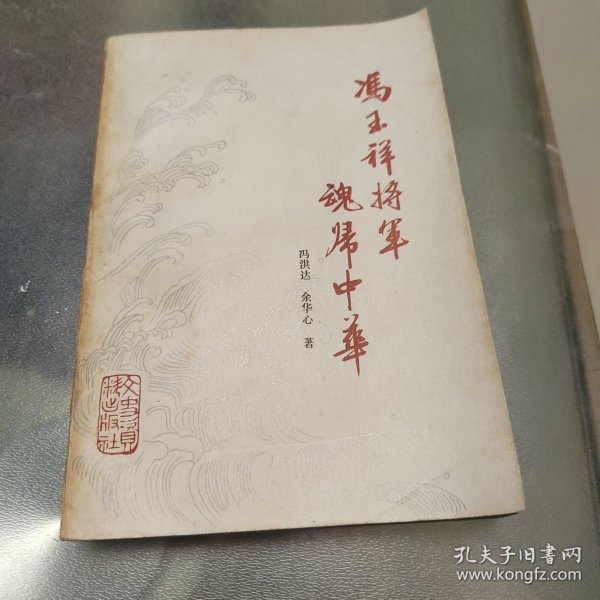 馮玉祥将軍
魂歸中華
冯洪达 余华心 著
文史資料出版社
孔夫子旧书网
www.kongfz.com